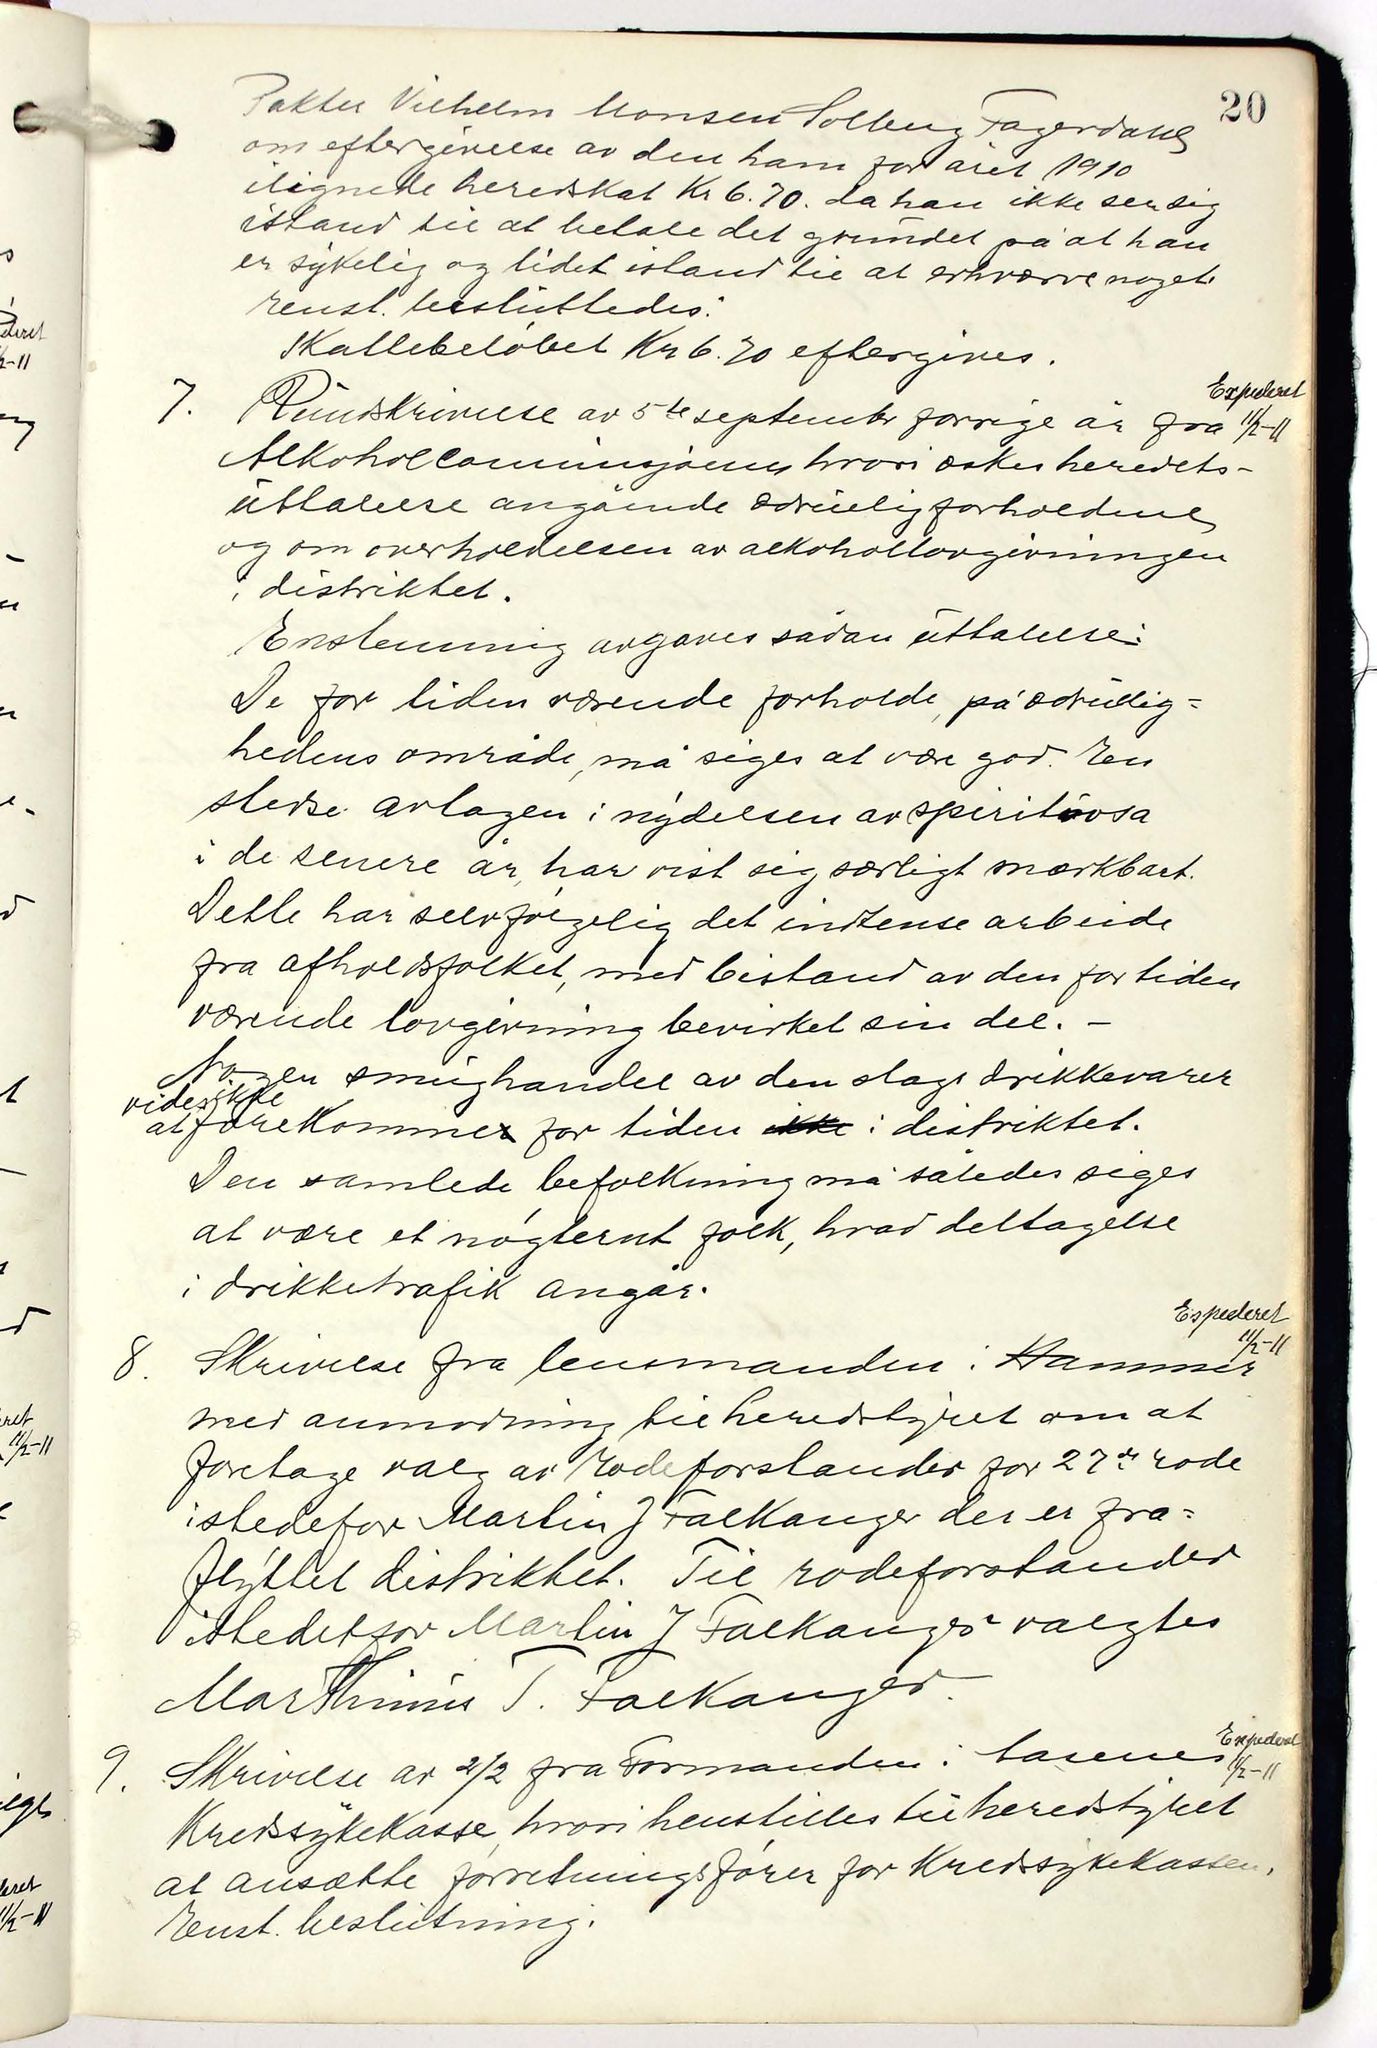 20
Pakter Vilhelm Monsen Solberg Fagerdahl
om eftergivelse av den ham for året 1910
ilignede heredskat Kr 6.70. da han ikke ser sig
istand til at betale det grundet på at han
er sykelig og lidet istand til at erhværve noget.
enst. besluttedes:
Skattebeløbet Kr 6.70 eftergives.
Expederet
11/2-11
7. Rundskrivelse av 5te septembr forrige år fra
Alkoholcommisjonen hvori æskes heredets-
uttalelse angående ædruelig forholdene
og om overholdelsen av alkohollovgivningen
i distriktet.
Enstemmig avgaves sådan uttalelse:
De for tiden værende forholde, på ædruelig=
hedens område, må siges at være god. En
stedse avtagen i nydelsen av spirituosa
i de senere år, har vist sig særligt mærkbart.
Dette har selvfølgelig det indtense arbeide
fra afholdsfolket, med bistand av den for tiden
værende lovgivning bevirket sin del. –
Nogen smughandel av den slags drikkevarer
vides ikke
at forekomme for tiden ikke i distriktet.
Den samlede befolkning må således siges
at være et nøgternt folk, hvad deltagelse
i drikketrafik angår.
Expederet
11/2-11
8. Skrivelse fra lensmanden i Hammer
med anmodning til heredstyret om at
foretage valg av rodeforstander for 27de rode
istedefor Martin J Falkanger der er fra=
flyttet distriktet. Til rodeforstander
istedetfor Martin J Falkanger valgtes
Marthinus T. Falkanger.
Expederet
11/2-11
9. Skrivelse av 2/2 fra Formanden i
Kredssykekasse, hvori henstilles til heredstyret
at ansætte forretningsfører for Kredssykekassen.
Enst. beslutning: